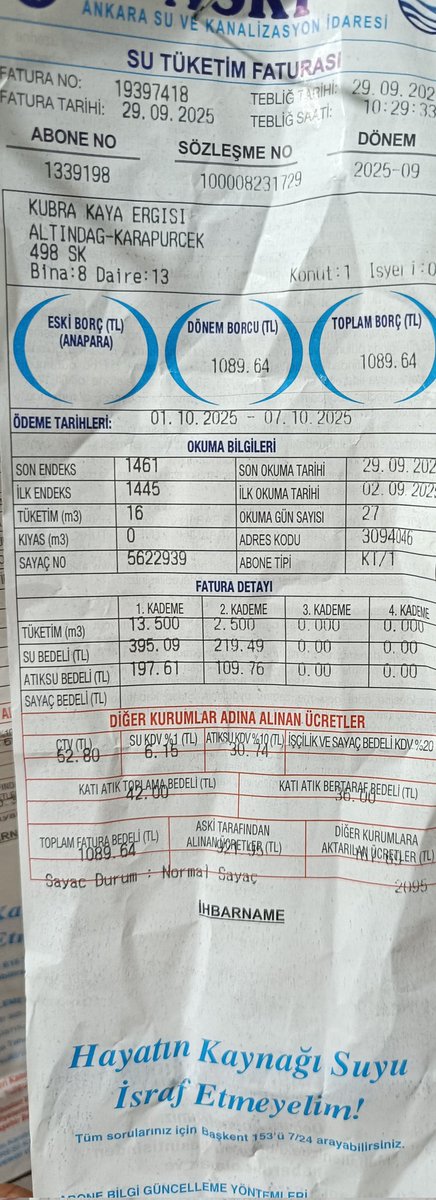 ANKARA SU VE KANALİZASYON İDARESİ
SU TÜKETİM FATURASI
FATURA NO: 19397418 TEBLİĞ TARİHİ: 29.09.202
FATURA TARİHİ: 29.09.2025 TEBLİĞ SAATİ: 10:29:33
ABONE NO SÖZLEŞME NO DÖNEM
1339198 100008231729 2025-09
KUBRA KAYA ERGISI
ALTINDAG-KARAPURCEK
498 SK
Bina:8 Daire:13 Konut:1 Isyeri:0
ESKİ BORÇ (TL) (ANAPARA) DÖNEM BORCU (TL) TOPLAM BORÇ (TL)
1089.64 1089.64
ÖDEME TARİHLERİ: 01.10.2025 - 07.10.2025
OKUMA BİLGİLERİ
SON ENDEKS 1461 SON OKUMA TARİHİ 29.09.202
İLK ENDEKS 1445 İLK OKUMA TARİHİ 02.09.202
TÜKETİM (m3) 16 OKUMA GÜN SAYISI 27
KIYAS (m3) 0 ADRES KODU 3094046
SAYAÇ NO 5622939 ABONE TİPİ KT/1
FATURA DETAYI
1. KADEME 2. KADEME 3. KADEME 4. KADEME
TÜKETİM (m3) 13.500 2.500 0.000 0.000
SU BEDELİ (TL) 395.09 219.49 0.00 0.00
ATIKSU BEDELİ (TL) 197.61 109.76 0.00 0.00
SAYAÇ BEDELİ (TL)
DİĞER KURUMLAR ADINA ALINAN ÜCRETLER
ÇTV (TL) SU KDV %1 (TL) ATIKSU KDV %10 (TL) İŞÇİLİK VE SAYAÇ BEDELİ KDV %20
52.80 6.15 30.74
KATI ATIK TOPLAMA BEDELİ (TL) KATI ATIK BERTARAF BEDELİ (TL)
42.00 36.00
TOPLAM FATURA BEDELİ (TL) ASKİ TARAFINDAN ALINAN ÜCRETLER (TL) DİĞER KURUMLARA AKTARILAN ÜCRETLER (TL)
1089.64 921.95
Sayac Durum : Normal Sayaç 2095
İHBARNAME
Hayatın Kaynağı Suyu
İsraf Etmeyelim!
Tüm sorularınız için Başkent 153'ü 7/24 arayabilirsiniz.
ABONE BİLGİ GÜNCELLEME YÖNTEMLERİ